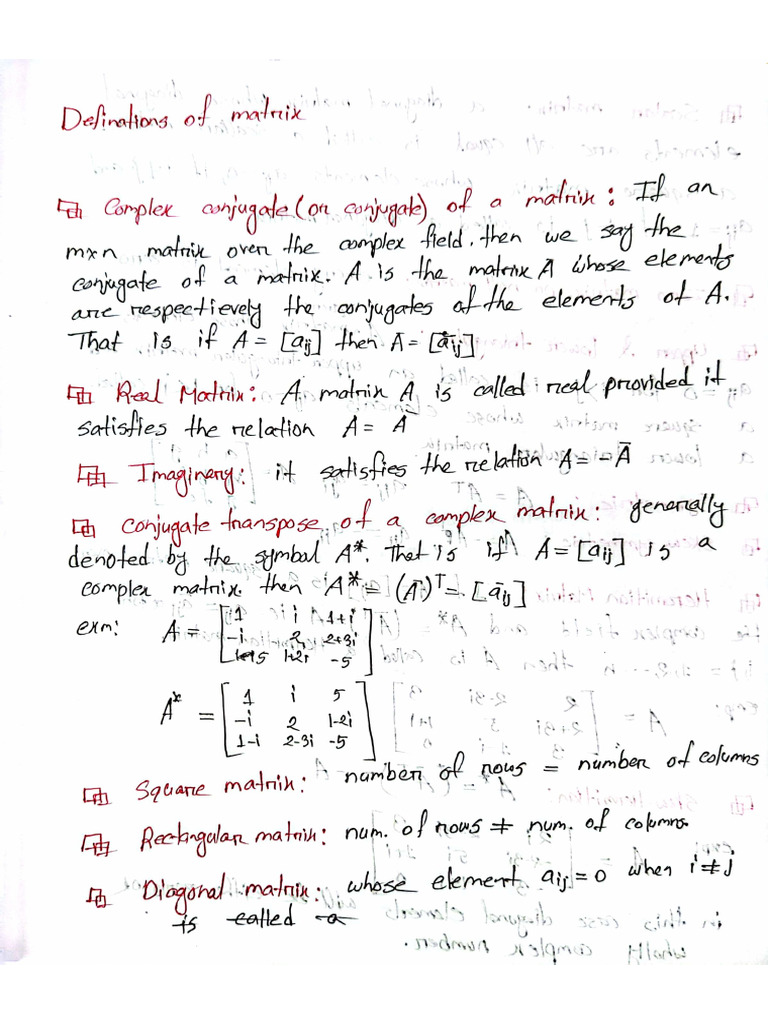 Definations of matrix
Complex conjugate (or conjugate) of a matrix: If an
m×n matrix over the complex field. then we say the
conjugate of a matrix. A is the matrix Ā whose elements
are respectievely the conjugates of the elements of A.
That is if A = [aij] then Ā = [āij]
Real Matrix: A matrix A is called real provided it
satisfies the relation A = A
Imaginery: it satisfies the relation A = -Ā
Conjugate transpose of a complex matrix: generally
denoted by the symbol A*. That is if A = [aij] is a
complex matrix. then A* = (Ā)ᵀ = [āij]
exm: A = [ 1 i 1+i
-i 2 2+3i
5 1+2i -5 ]
A* = [ 1 i 5
-i 2 1-2i
1-i 2-3i -5 ]
Square matrix: number of rows = number of columns
Rectangular matrix: num. of rows ≠ num. of columns.
Diagonal matrix: whose element aij = 0 when i ≠ j
is called a